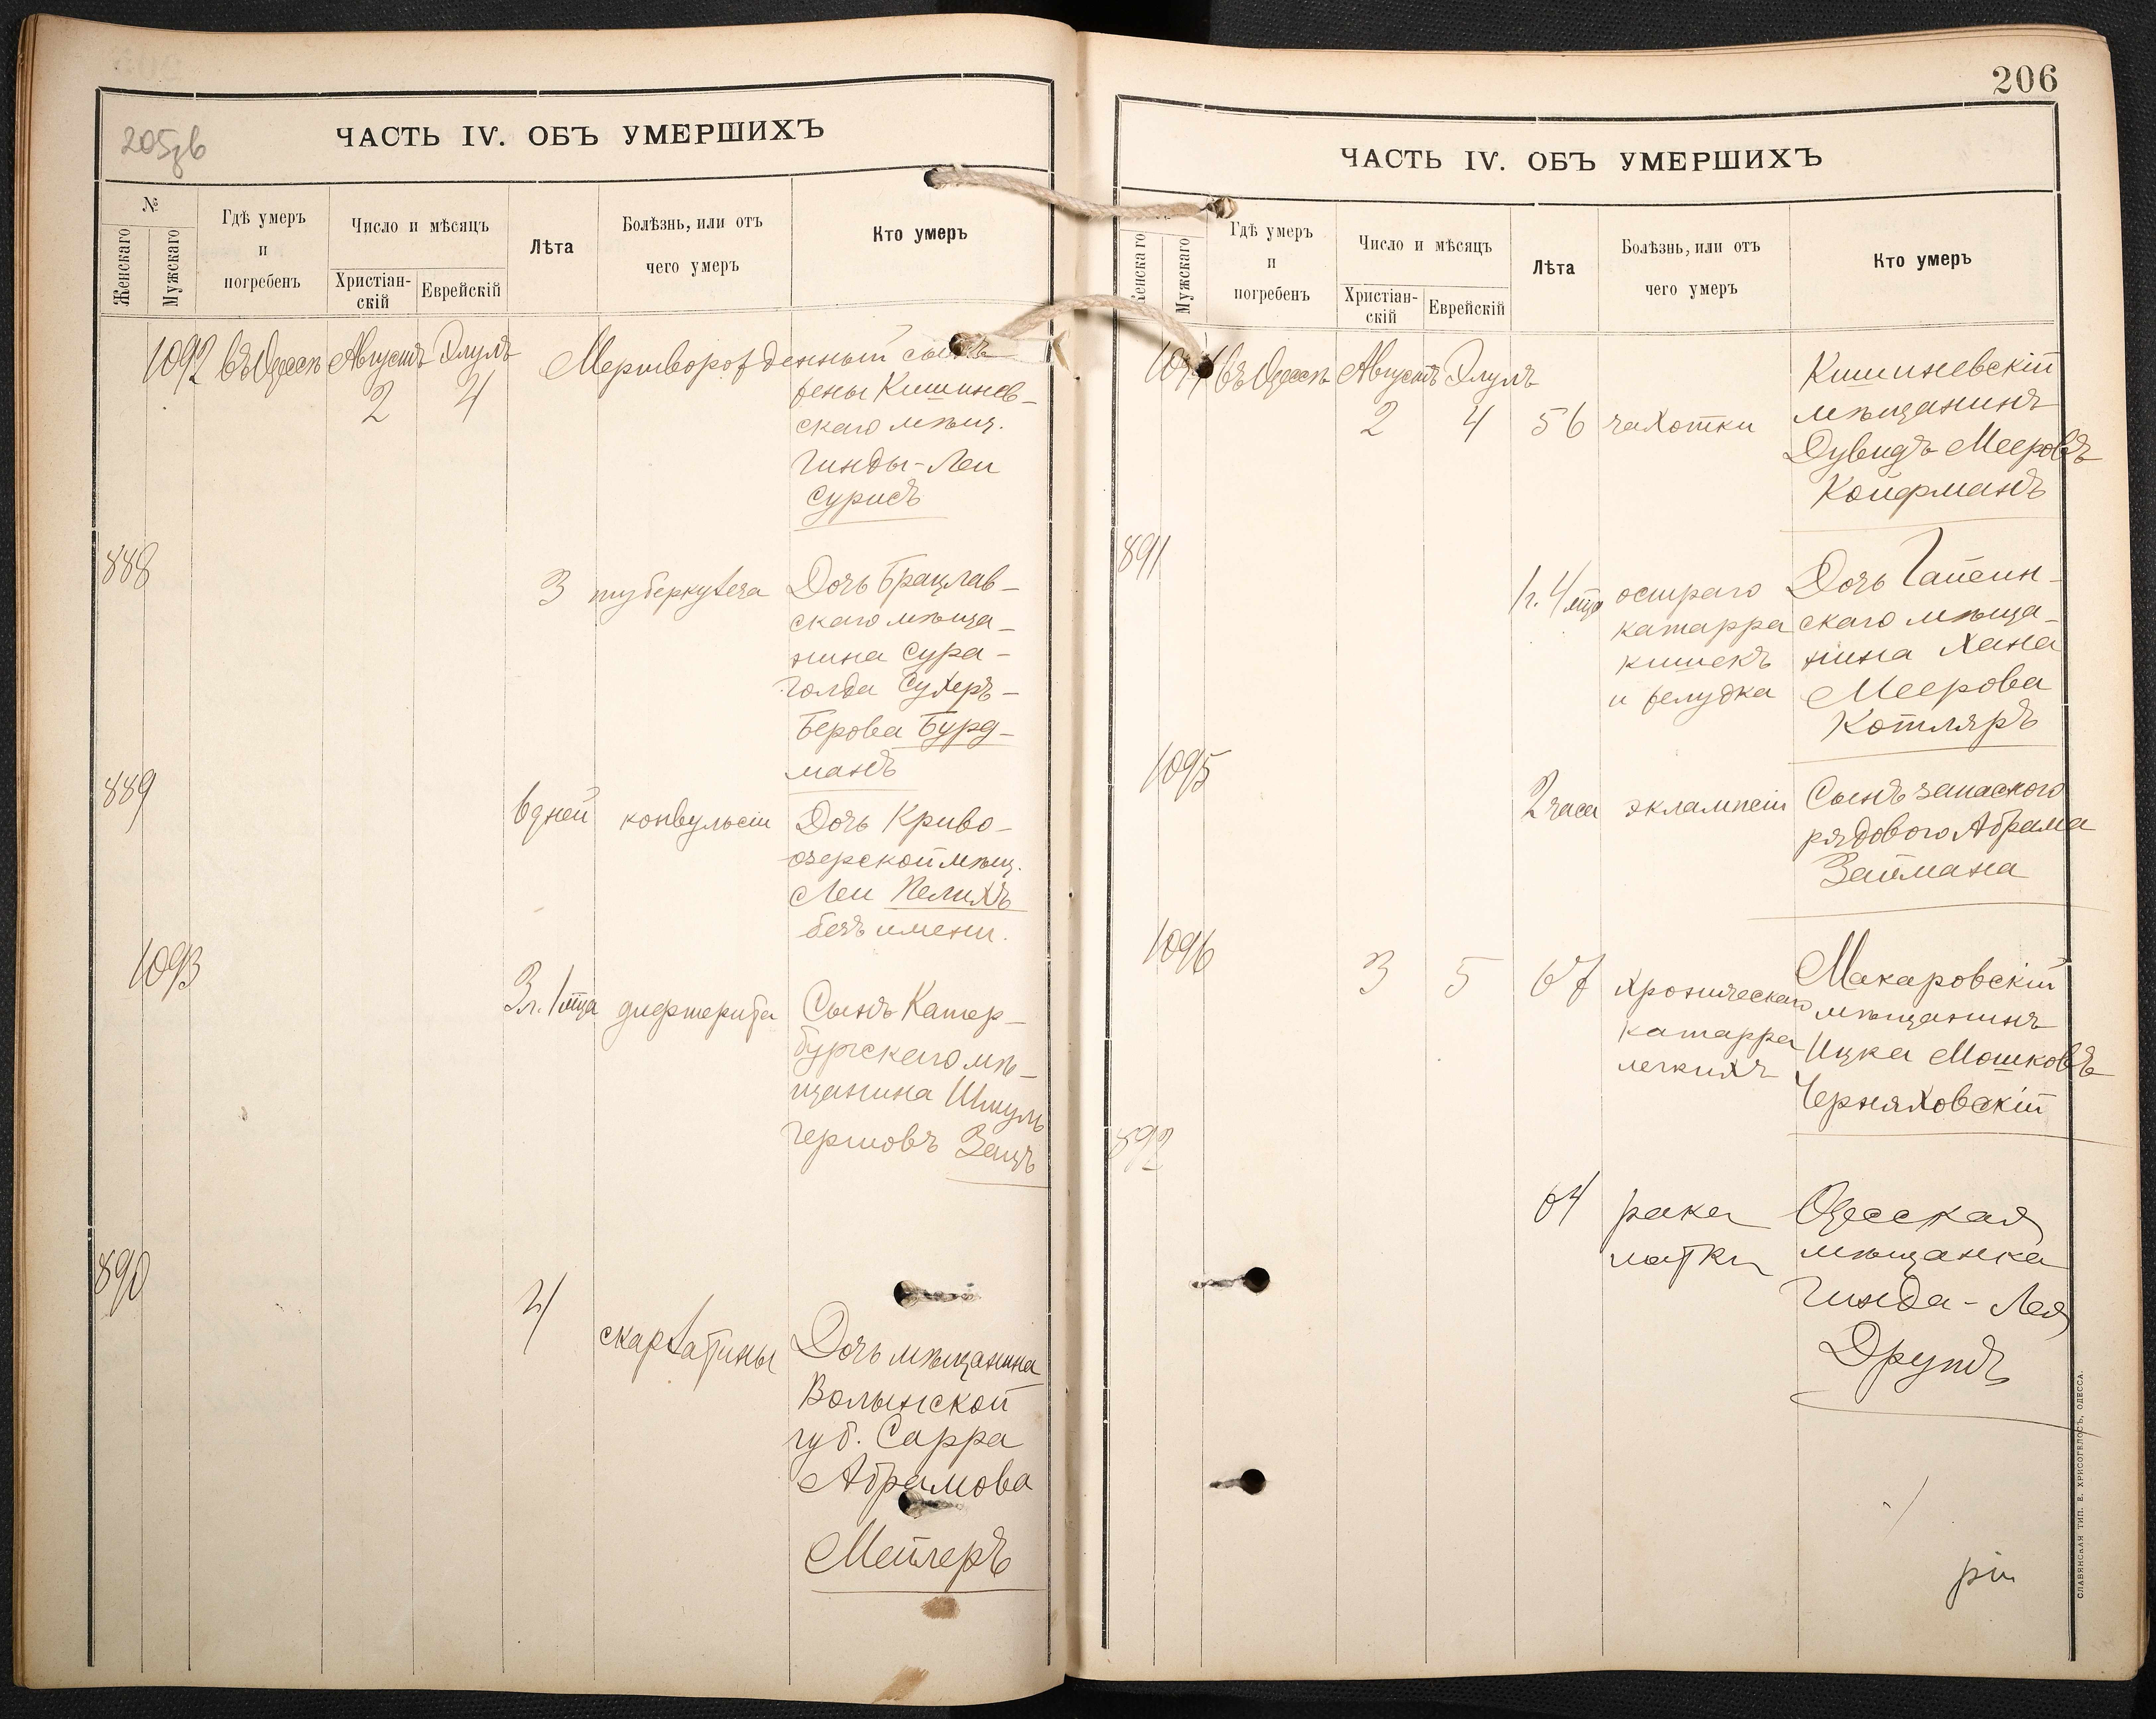 205зв
ЧАСТЬ IV. ОБЪ УМЕРШИХЪ
№
Женскаго
Мужскаго
Гдѣ умеръ
и
погребенъ
Число и мѣсяцъ
Христіан-
скій
Еврейскій
Лѣта
Болѣзнь, или отъ
чего умеръ
Кто умеръ
1092 въ Одессѣ Августъ Элулъ Мертворожденный сынъ
2 4 жены Кишинев-
скаго мѣщ.
Гинды-Леи
Сурисъ
888
3 туберкулеза Дочь Брацлав-
скаго мѣща-
нина Сура-
Голда Сухеръ-
Берова Бурд-
манъ
889
6 дней конвульсіи Дочь Криво-
озерской мѣщ.
Леи Пелихъ
безъ имени.
1093
3 л. 1 мца дифтерита Сынъ Катер-
бургскаго мѣ-
щанина Шмуль
Гершовъ Зацъ
890
4
скарлатины Дочь мѣщанина
Волынской
губ. Сарра
Абрамова
Мейлеръ
206
ЧАСТЬ IV. ОБЪ УМЕРШИХЪ
Женскаго
Мужскаго
Гдѣ умеръ
и
погребенъ
Число и мѣсяцъ
Христіан-
скій
Еврейскій
Лѣта
Болѣзнь, или отъ
чего умеръ
Кто умеръ
1094 въ Одессѣ Августъ Элулъ Кишиневскій
2 4 56 чахотки мѣщанинъ
Дувидъ Мееровъ
Койфманъ
891
1 г. 4 мца остраго Дочь Гайсин-
катарра скаго мѣща-
кишекъ нина Хана
и желудка Меерова
Котляръ
1095
2 часа эклампсіи Сынъ запаснаго
рядового Абрама
Займана
1096
3 5 67 хроническаго Макаровскій
катарра мѣщанинъ
легкихъ Ицка Мошковъ
Черняховскій
892
64 рака Одесская
матки мѣщанка
Гинда-Лея
Друтъ
СЛАВЯНСКАЯ ТИП. Е. ХРИСОГЕЛОСЪ, ОДЕССА.